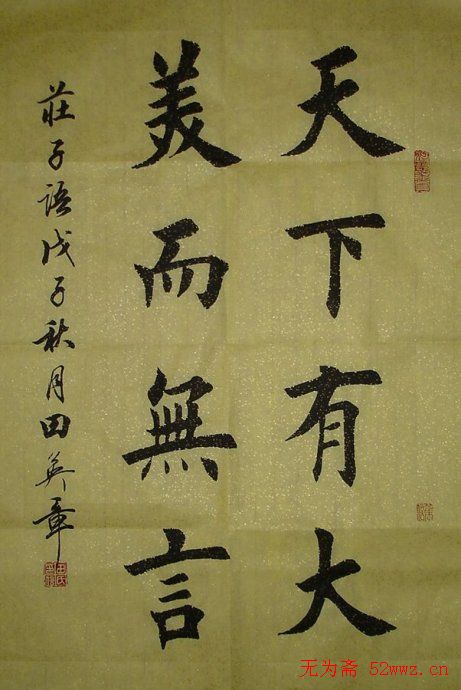 天下有大
美而無言
莊子語戊子秋月田英章
无为斋 52wwz.cn